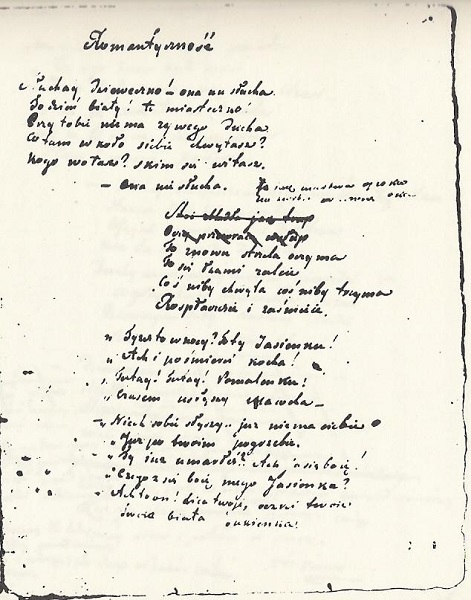 Romantyczność
Słuchay Dzieweczno! – ona nie słucha.
To dzień biały! to miasteczno!
Przy tobie niema żywego Ducha
Co tam w koło siebie chwytasz?
Kogo wołasz? z kim się witasz.
– Ona nie słucha.
To jak martwa
To znowu strzela oczyma
To się łzami zaleie
Coś niby chwyta coś niby trzyma
Rozpłacze i zaśmieie.
„ Tyżeś to w nocy? To ty Jasienku!
„ Ach i po śmierci kocha!
„ Tutay! Tutay! Pomalenku!
„ Czasem usłyszy Macocha –
– „ Niech sobie słyszy.. już niema ciebie
„ Już po twoim pogrzebie.
„ Ty już umarłeś? Ach ia się boię!
„ Czego się boię mego Jasienka?
„ Ach to on! lica twoje, oczki twoie
twoia biała sukienka!